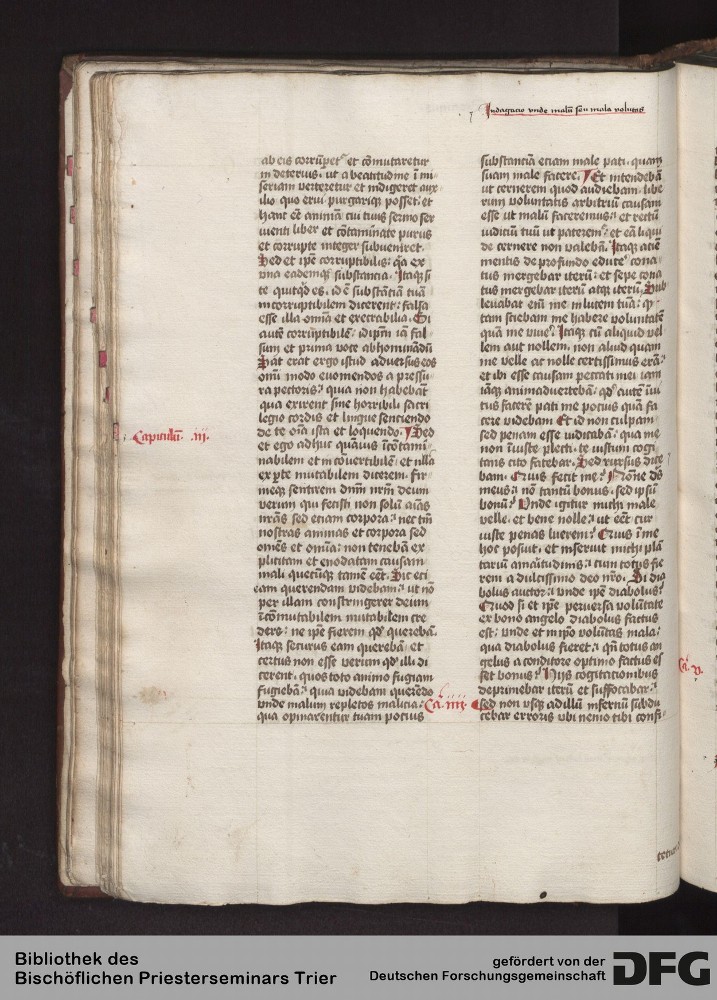 Indagacio vnde malū seu mala volūtas
ab eis corrūpet᷑ et cōmutaretur
in deterius, ut a beatitudine ī mi
seriam verteretur et indigeret aux
ilio quo erui purgariqȝ posset, et
hanc eē animā cui tuus sermo ser
uienti liber et cōtaminate purus
et corrupte integer subueniret.
Sed et ip̄e corruptibilis: q̄a ex
vna eademqȝ substancia. Itaqȝ si
te quitq̄d es, id ē substātiā tuā
incorruptibilem dicerent: falsa
esse illa omīa et execrabilia. Si
autē corruptibilē: idip̄m iā fal
sum et prima voce abhominādū
Sat erat ergo istud aduersus eos
omī modo euomendos a pressu
ra pectoris: qua non habebāt
qua exirent sine horribili sacri
legio cordis et lingue senciendo
de te oīa ista et loquendo. Sed
Capitulū. iii.
et ego adhuc quāuis īcōtami
nabilem et incōuertibilē et nlla
ex p̱te mutabilem dicerem, fir
meqȝ sentirem dn̄m nr̄m deum
verum qui fecisti non solū aīas
nr̄as sed etiam corpora: nec tm̄
nostras animas et corpora sed
omēs et omīa: non tenebā ex
plicitam et enodatam causam
mali quecūqȝ tamē eēt. Sic eti
eam querendam videbam: ut nō
per illam constringerer deum
īcōmutabilem mutabilem cre
dere: ne ip̄e fierem qd̓ querebā.
Itaqȝ securus eam querebā et
certus non esse verum qd̓ illi di
cerent, quos toto animo fugiam
fugiebā: quia videbam querēdo
vnde malum repletos malicia:
Ca. iiii.
qua opinarentur tuam pocius
substanciā etiam male pati, quam
suam male facere. Et intendebā
ut cernerem quod audiebam, libe
rum voluntatis arbitriū causam
esse ut malū faceremus: et rectū
iudiciū tuū ut paterem᷑: et eā liqui
de cernere non valebā. Itaqȝ aciē
mentis de profundo educe᷑ cona
tus mergebar iterū: et sepe cona
tus mergebar iterū atqȝ iterū. Sub
leuabat enī me in lucem tuā: q̱
tam sciebam me habere voluntatē
quā me viue᷑. Itaqȝ cū aliquid vel
lem aut nollem, non aliud quam
me velle ac nolle certissimus erā:
et ibi esse causam peccati mei iam
iāqȝ animaduertebā: qd̓ autē īui
tus facerē pati me pocius quā fa
cere videbam. Et id non culpam
sed penam esse iudicabā: qua me
non īiuste plecti, te iustum cogi
tans cito fatebar. Sed rursus dice
bam. Quis fecit me? Nōne ds̄
meus: nō tantū bonus, sed ip̄sū
bonū? Vnde igitur michi male
velle, et bene nolle: ut eēt cur
iuste penas luerem? Quis ī me
hoc posuit, et inseruit michi plā
tariū amaritudinis: cum totus fie
rem a dulcissimo deo nr̄o. Si dia
bolus auctor: vnde ip̄e diabolus?
Quod si et ip̄e peruersa volūtate
ex bono angelo diabolus factus
est: vnde et in ip̄o volūtas mala:
qua diabolus fieret: qn̄ totus an
gelus a conditore optimo factus es
set bonus? Hijs cogitacionibus
deprimebar iterū et suffocabar:
Ca. v.
sed non vsqȝ ad illū infernū subdu
cebar erroris vbi nemo tibi confi
Bibliothek des
Bischöflichen Priesterseminars Trier
gefördert von der
Deutschen Forschungsgemeinschaft
DFG